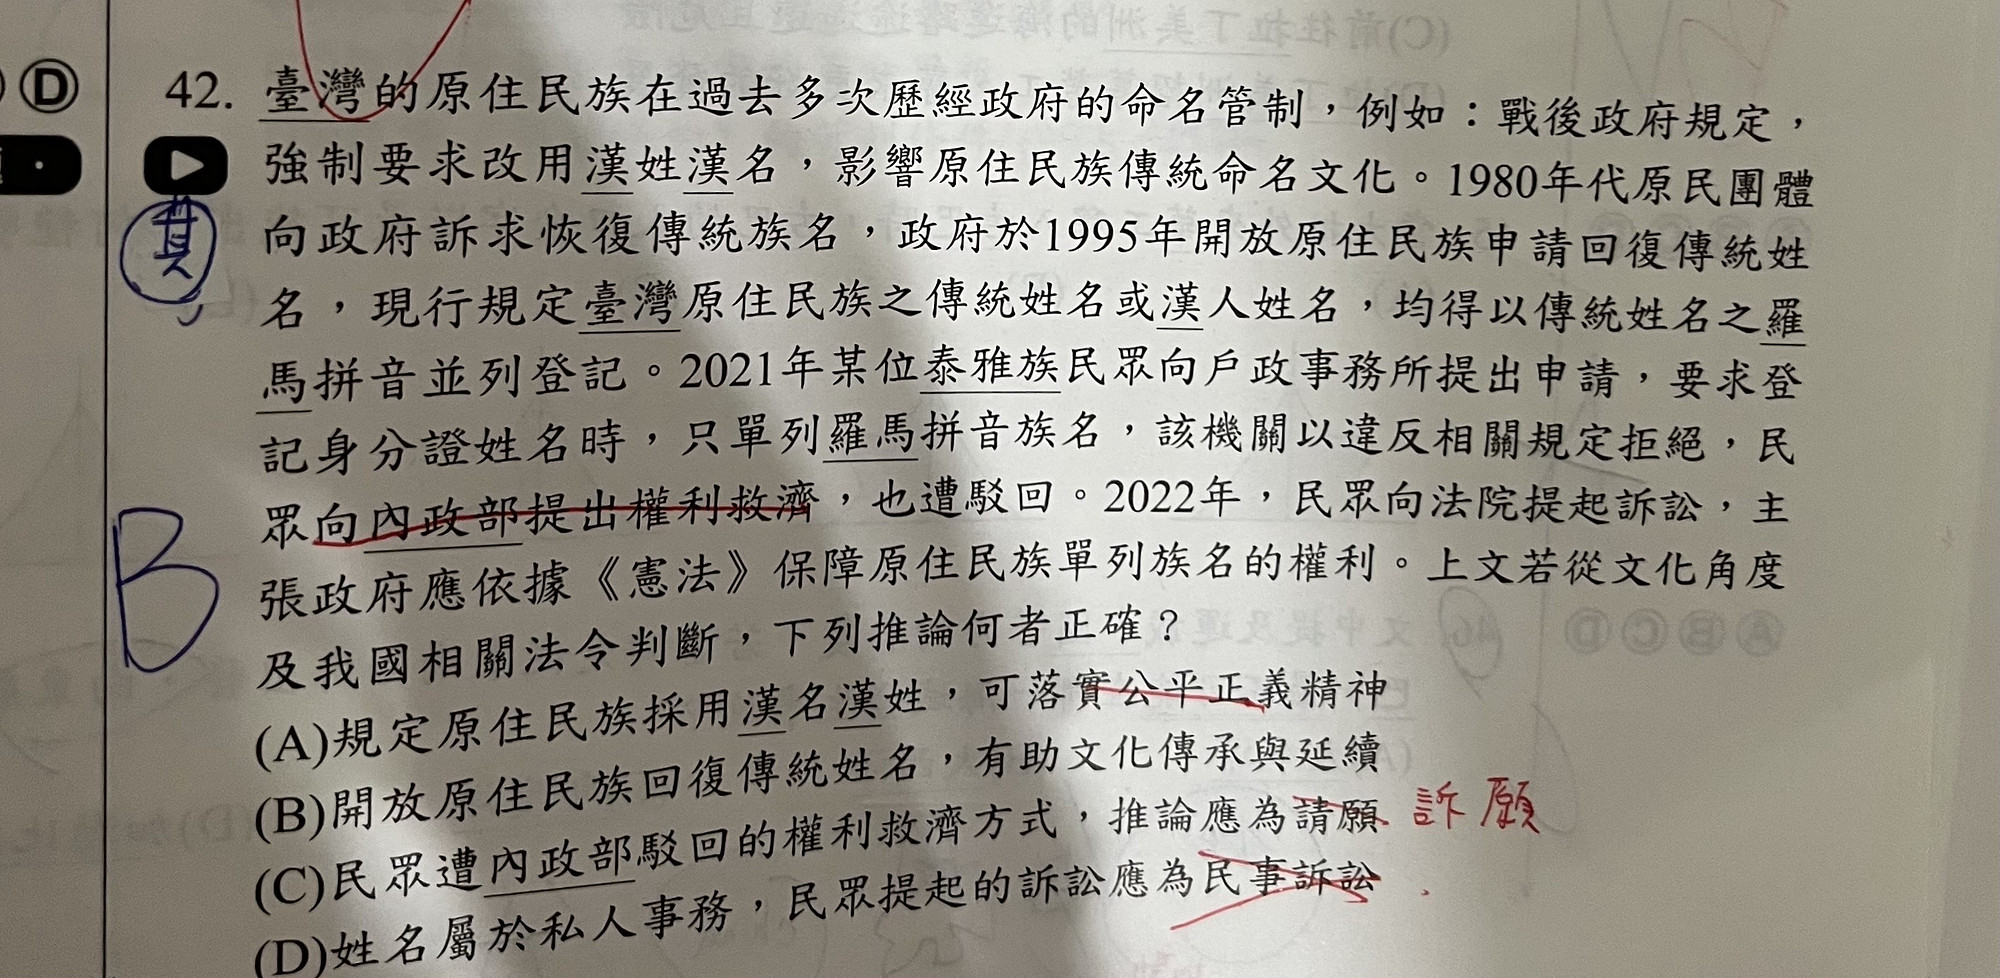 Ⓓ
42. 臺灣的原住民族在過去多次歷經政府的命名管制，例如：戰後政府規定，
強制要求改用漢姓漢名，影響原住民族傳統命名文化。1980年代原民團體
向政府訴求恢復傳統族名，政府於1995年開放原住民族申請回復傳統姓
名，現行規定臺灣原住民族之傳統姓名或漢人姓名，均得以傳統姓名之羅
馬拼音並列登記。2021年某位泰雅族民眾向戶政事務所提出申請，要求登
記身分證姓名時，只單列羅馬拼音族名，該機關以違反相關規定拒絕，民
眾向內政部提出權利救濟，也遭駁回。2022年，民眾向法院提起訴訟，主
張政府應依據《憲法》保障原住民族單列族名的權利。上文若從文化角度
及我國相關法令判斷，下列推論何者正確？
B
(A)規定原住民族採用漢名漢姓，可落實公平正義精神
(B)開放原住民族回復傳統姓名，有助文化傳承與延續
(C)民眾遭內政部駁回的權利救濟方式，推論應為請願 訴願
(D)姓名屬於私人事務，民眾提起的訴訟應為民事訴訟